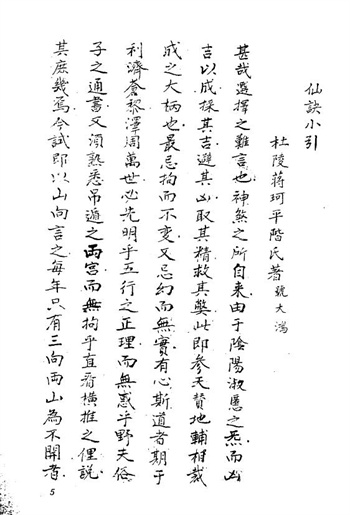 仙訣小引
杜陵蔣珂平階氏著號大鴻
甚哉選擇之難言也神煞之所自来由于陰陽淑慝之炁而凶
吉以成採其吉避其凶取其精救其獘此即參天贊地輔相裁
成之大柄也最忌拘而不变又忌幻而無實有心斯道者期于
利濟蒼黎澤周萬世必先明乎五行之正理而無惑乎野夫俗
子之通書又須熟悉吊遁之兩宮而無拘乎直看橫推之俚説
其庶幾焉今試即以山向言之每年只有三向兩山為不開者
5